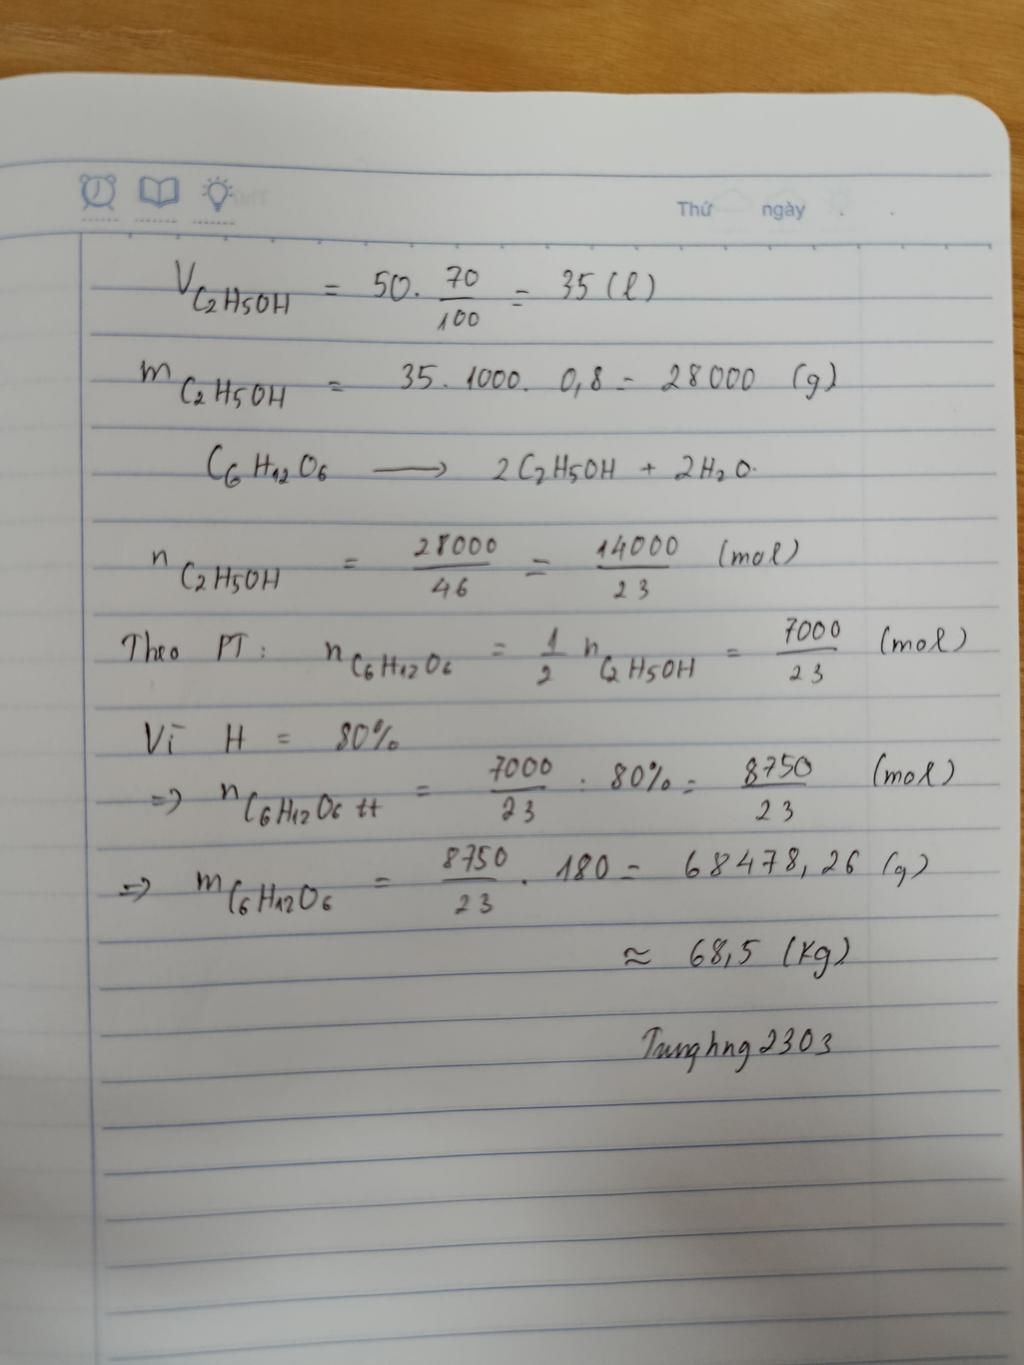 Thứ ngày
V C2H5OH = 50. 70/100 = 35 (l)
m C2H5OH = 35. 1000. 0,8 = 28000 (g)
C6H12O6 → 2C2H5OH + 2H2O.
n C2H5OH = 28000/46 = 14000/23 (mol)
Theo PT: n C6H12O6 = 1/2 n C2H5OH = 7000/23 (mol)
Vì H = 80%
=> n C6H12O6 tt = 7000/23 : 80% = 8750/23 (mol)
=> m C6H12O6 = 8750/23 . 180 = 68478,26 (g)
≈ 68,5 (kg)